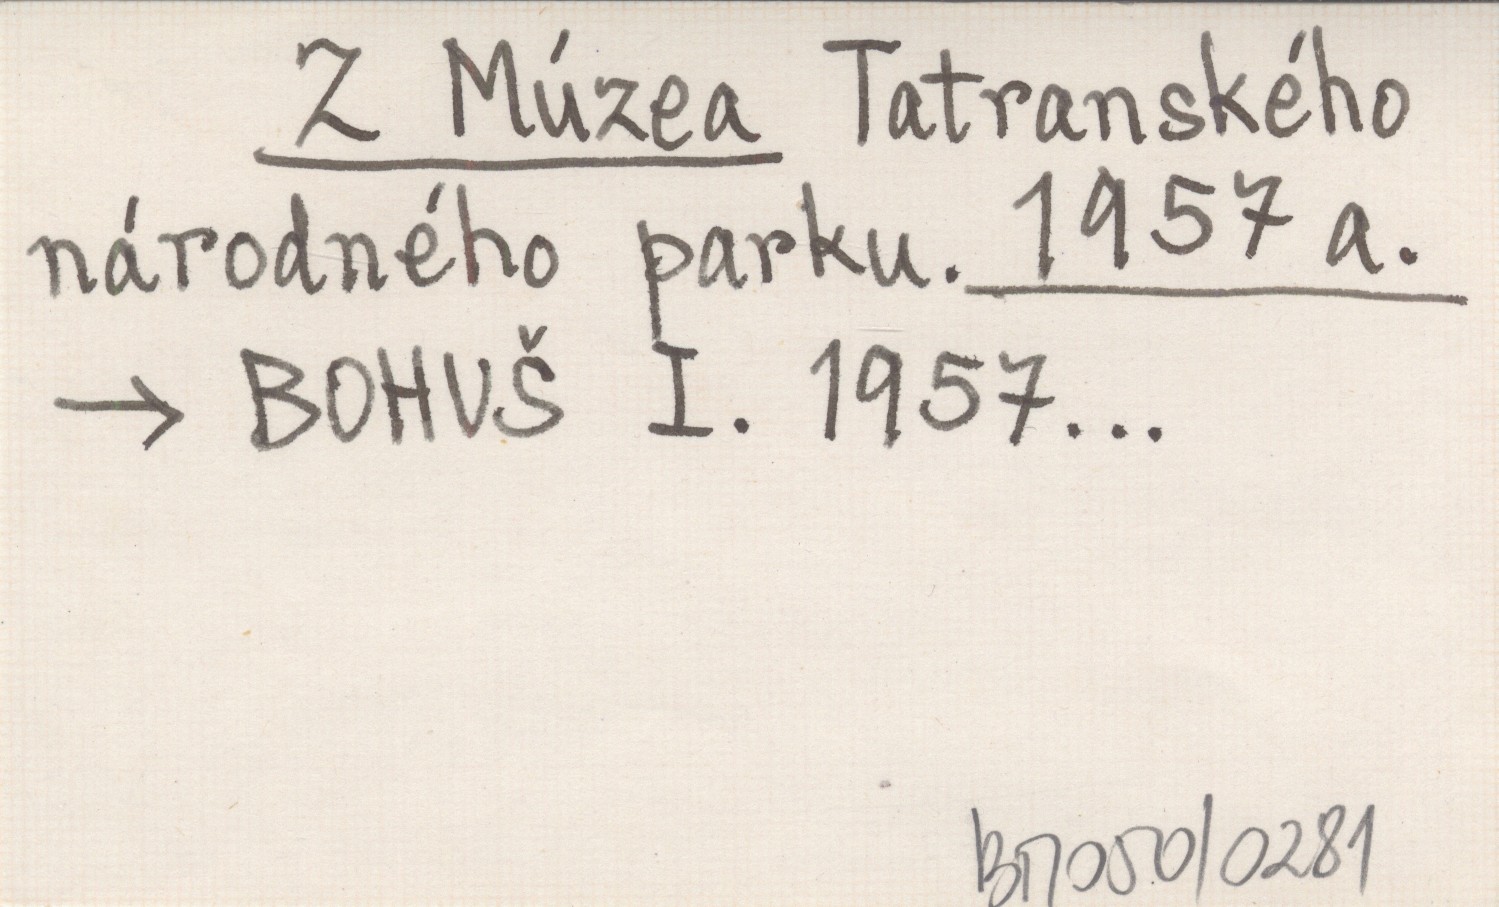 Z Múzea Tatranského
národného parku. 1957 a.
→ BOHUŠ I. 1957...